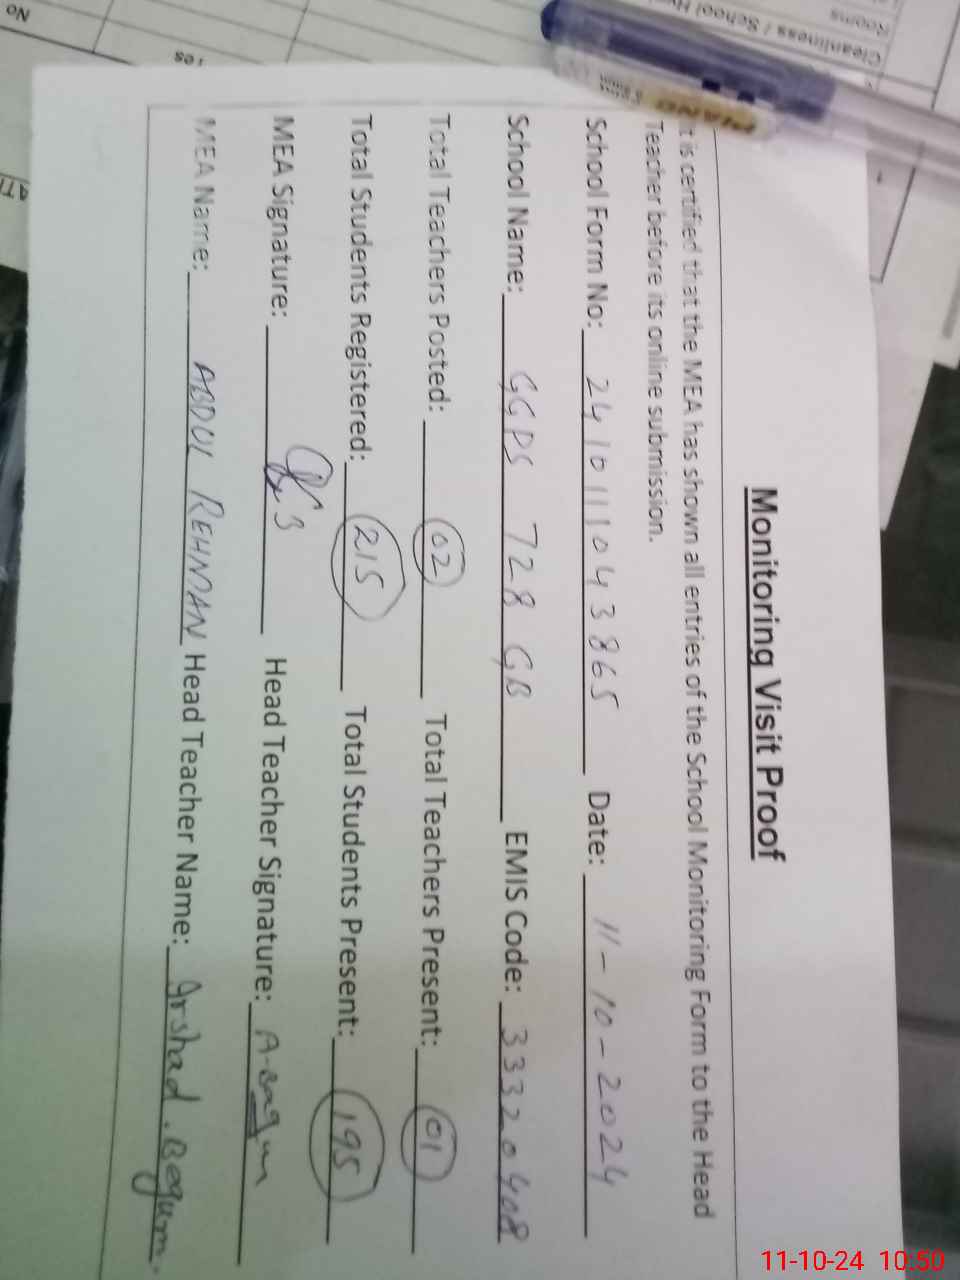 Monitoring Visit Proof
t is certified that the MEA has shown all entries of the School Monitoring Form to the Head
Teacher before its online submission.
School Form No: 24101111043865 Date: 11-10-2024
School Name: GGPS 728 GB EMIS Code: 33320408
Total Teachers Posted: 02 Total Teachers Present: 01
Total Students Registered: 215 Total Students Present: 195
MEA Signature: Head Teacher Signature: A-Bagum
MEA Name: ABDUL REHMAN Head Teacher Name: Irshad.Begum.
Cleanliness / School
Rooms
No
PIANO
11-10-24 10:50